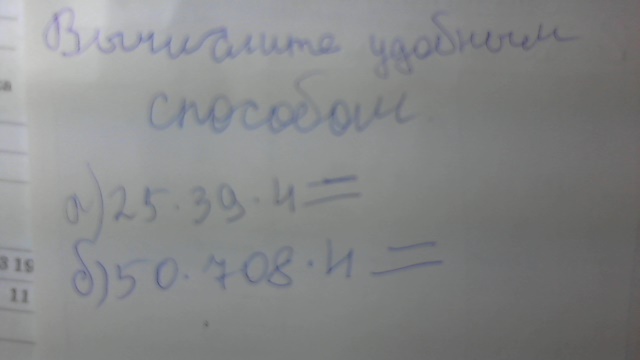 Вычислите удобным
способом
а) 25·39·4=
б) 50·708·4=
3 15
11